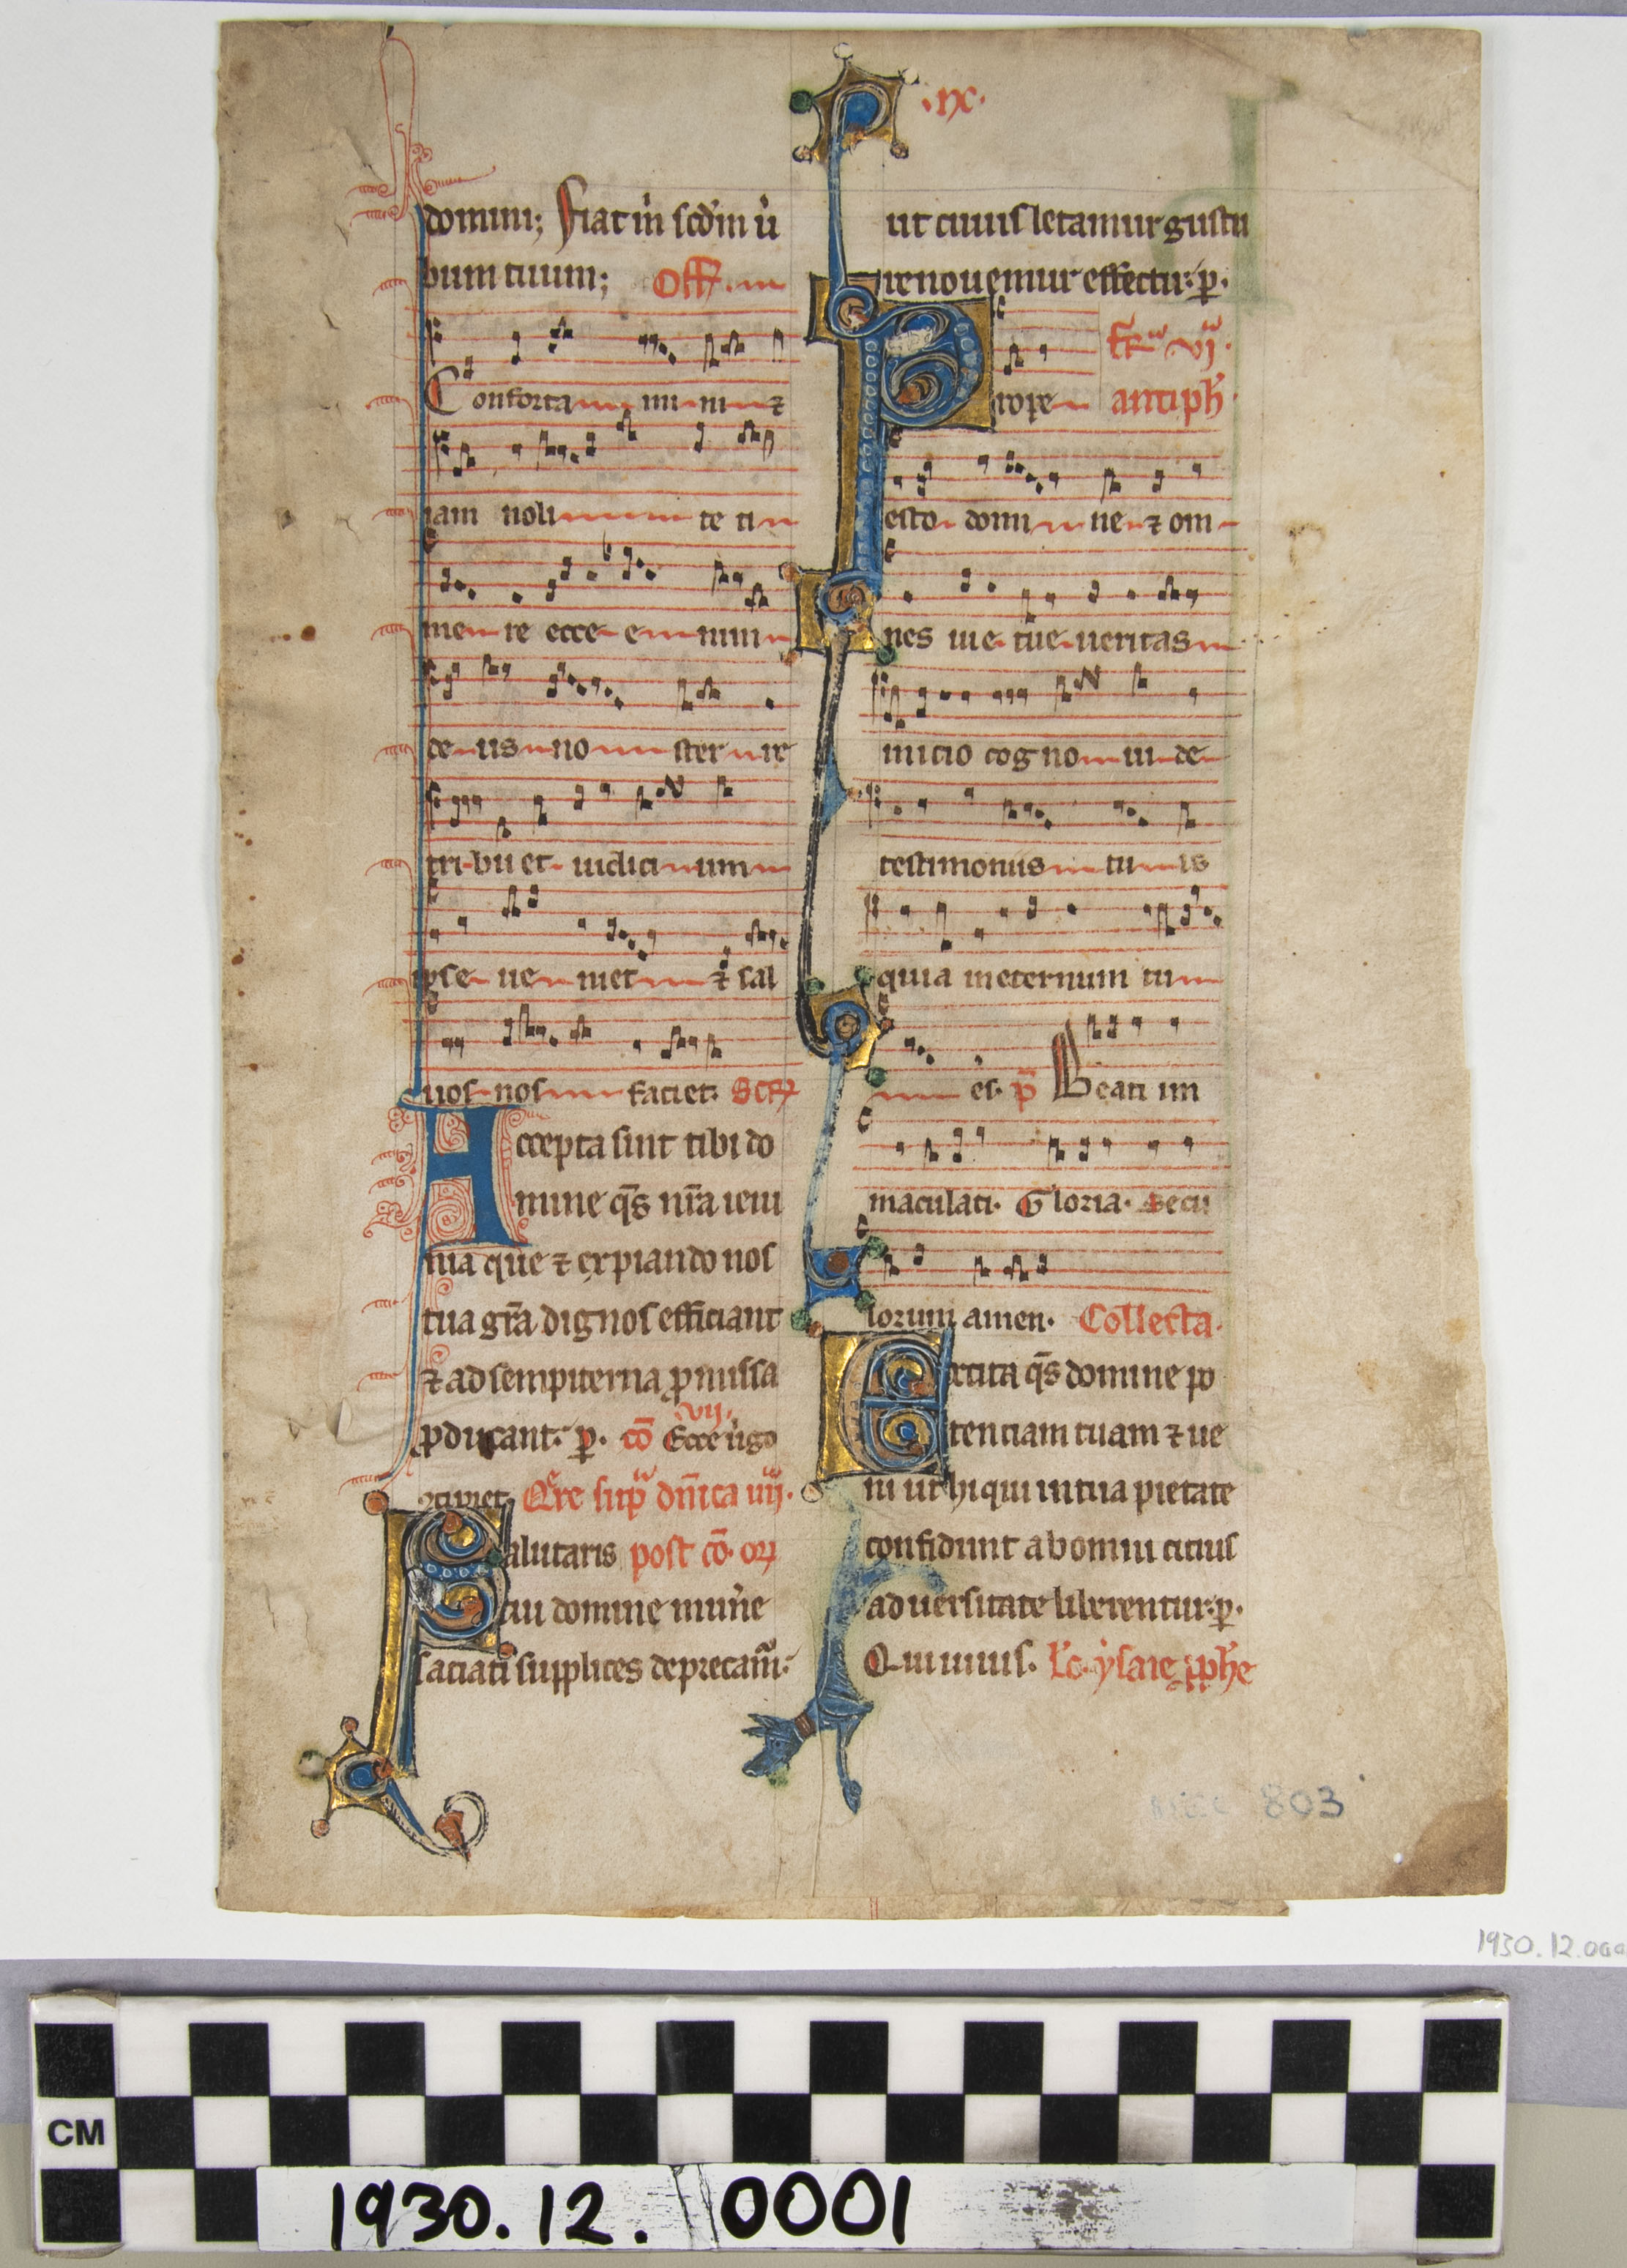 .ix.
domini; Fiat m̊ scdm̄ ů
bum tuum; Off.
Conforta mi ni ⁊
iam noli te ti
me re ecce e nim
de us no ster re
tri bu et iudici um
ipse ue niet ⁊ sal
uos nos faciet. Secr̄
Accepta sint tibi do
mine qs̄ nr̄a ieiu
nia que ⁊ expiando nos
tua gr̄a dignos efficiant
⁊ ad sempiterna ꝓmissa
ꝑducant. ꝑ. cō Ecce ůgo
.vij.
ↄcipiet. Qͤre supͣ dn̄ica iiij.
Salutaris post cō. oꝝ
tui domine mun̾e
saciati supplices deprecam̃.
ut cuius letamur gustu
renouemur effectu. ꝑ.
Prope Fr̄ᵃ vjᵃ.
antiph̄.
esto domi ne ⁊ om
nes uie tue ueritas
inicio cogno ui de
testimoniis tu is
quia ineternum tu
es. p̄ Beati im
maculati. Gloria. Secu
lorum amen. Collecta.
Excita qs̄ domine po
tenciam tuam ⁊ ue
ni ut hi qui in tua pietate
confidunt ab omni cicius
aduersitate liberentur. ꝑ.
Qui uiuis. Lc̄. ysaie ꝓph̄e
803
1930.12.000
CM
1930.12.0001